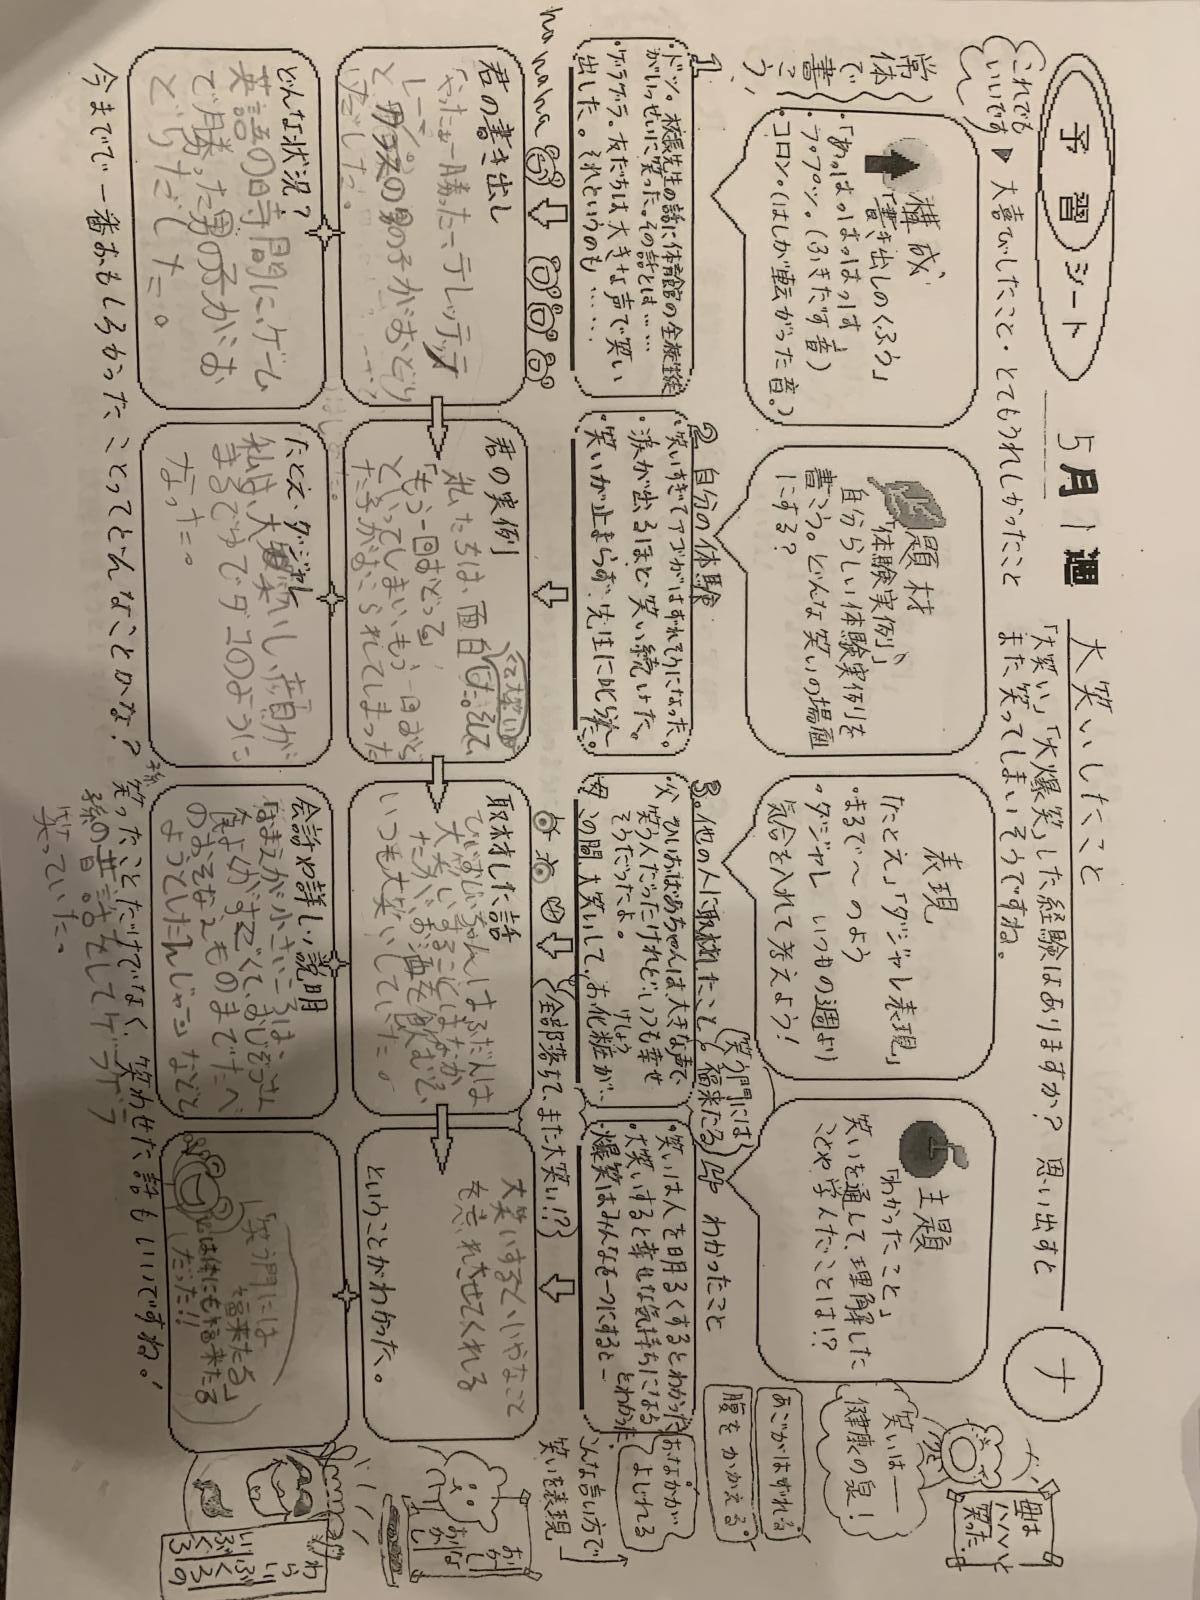 予習シート
5月1週
大笑いしたこと
ナ
「大笑い」「大爆笑」した経験はありますか？ 思い出すと
また笑ってしまいそうですね。
これでも
いいです
▶ 大喜びしたこと・とてもうれしかったこと
常体で書こう
構成
「書き出しのくふう」
・「あっはっはっはっはっ」
・プップッ。(ふきだす音)
・コロン。(はしが転がった音。)
題材
「体験実例」
自分らしい体験実例を
書こう。どんな笑いの場面
にする？
表現
「たとえ」「ダジャレ表現」
・まるで〜のよう
・ダジャレ いつもの週より
気合を入れて考えよう！
主題
「わかったこと」
笑いを通して、理解した
ことや学んだことは!?
母は
ハハハと
笑った。
笑いは
健康の泉！
1.
・ドッ。校長先生の話に体育館の全校生徒
がいっせいに笑った。その話とは……
・ゲラゲラ。友だちは大きな声で笑い
出した。それというのも……
2 自分の体験
・笑いすぎてアゴがはずれそうになった。
・涙が出るほど笑い続けた。
・笑いが止まらず、先生に叱られた。
3. 他の人に取材したこと
笑う門には
福来たる
父 ひいおばあちゃんは大きな声で
笑う人だったけれど、いつも幸せ
そうだったよ。
母 この間大笑いして、お化粧が、
けしょう
全部落ちて、また大笑い!?
わかったこと
・笑いは人を明るくするとわかった
・大笑いすると幸せな気持ちになる
・爆笑はみんなを一つにすると
とわかった
あごがはずれる
腹をかかえる
おなかが
よじれる
こんな言い方で
笑いを表現
hahaha
君の書き出し
「やったぁー勝ったーテレッテッテ
レー」
と男の子がおどり
だした。
君の実例
私たちは、面白
くて大笑い
した。そして、
「もう一回おどって」
といってしまい、もう一回おどっ
た子がおこられてしまった
取材した話
ひいおじいちゃんはふだんは
大笑いすることはなか
ったが、お酒を飲むと、
いつも大笑いしていた。
大笑いするといやなこと
を忘れさせてくれる
ということがわかった。
どんな状況？
英語の時間に、ゲーム
で勝った男の子がお
どりだした。
たとえ、ダジャレ
私は、大笑いし、顔が
まるでゆでダコのように
なった。
会話や詳しい説明
「なまえが小さいころは、
おじぞうさん
のおそなえものまでたべ
ようとしたんじゃ」などと
孫の昔話をしてゲラゲラ
笑っていた。
「笑う門には
福来たる」
だった!!
今までで一番おもしろかったことってどんなことかな？ 笑ったことだけでなく、笑わせた話もいいですね！
おかしい
おかしな
わらい
ぶくろ